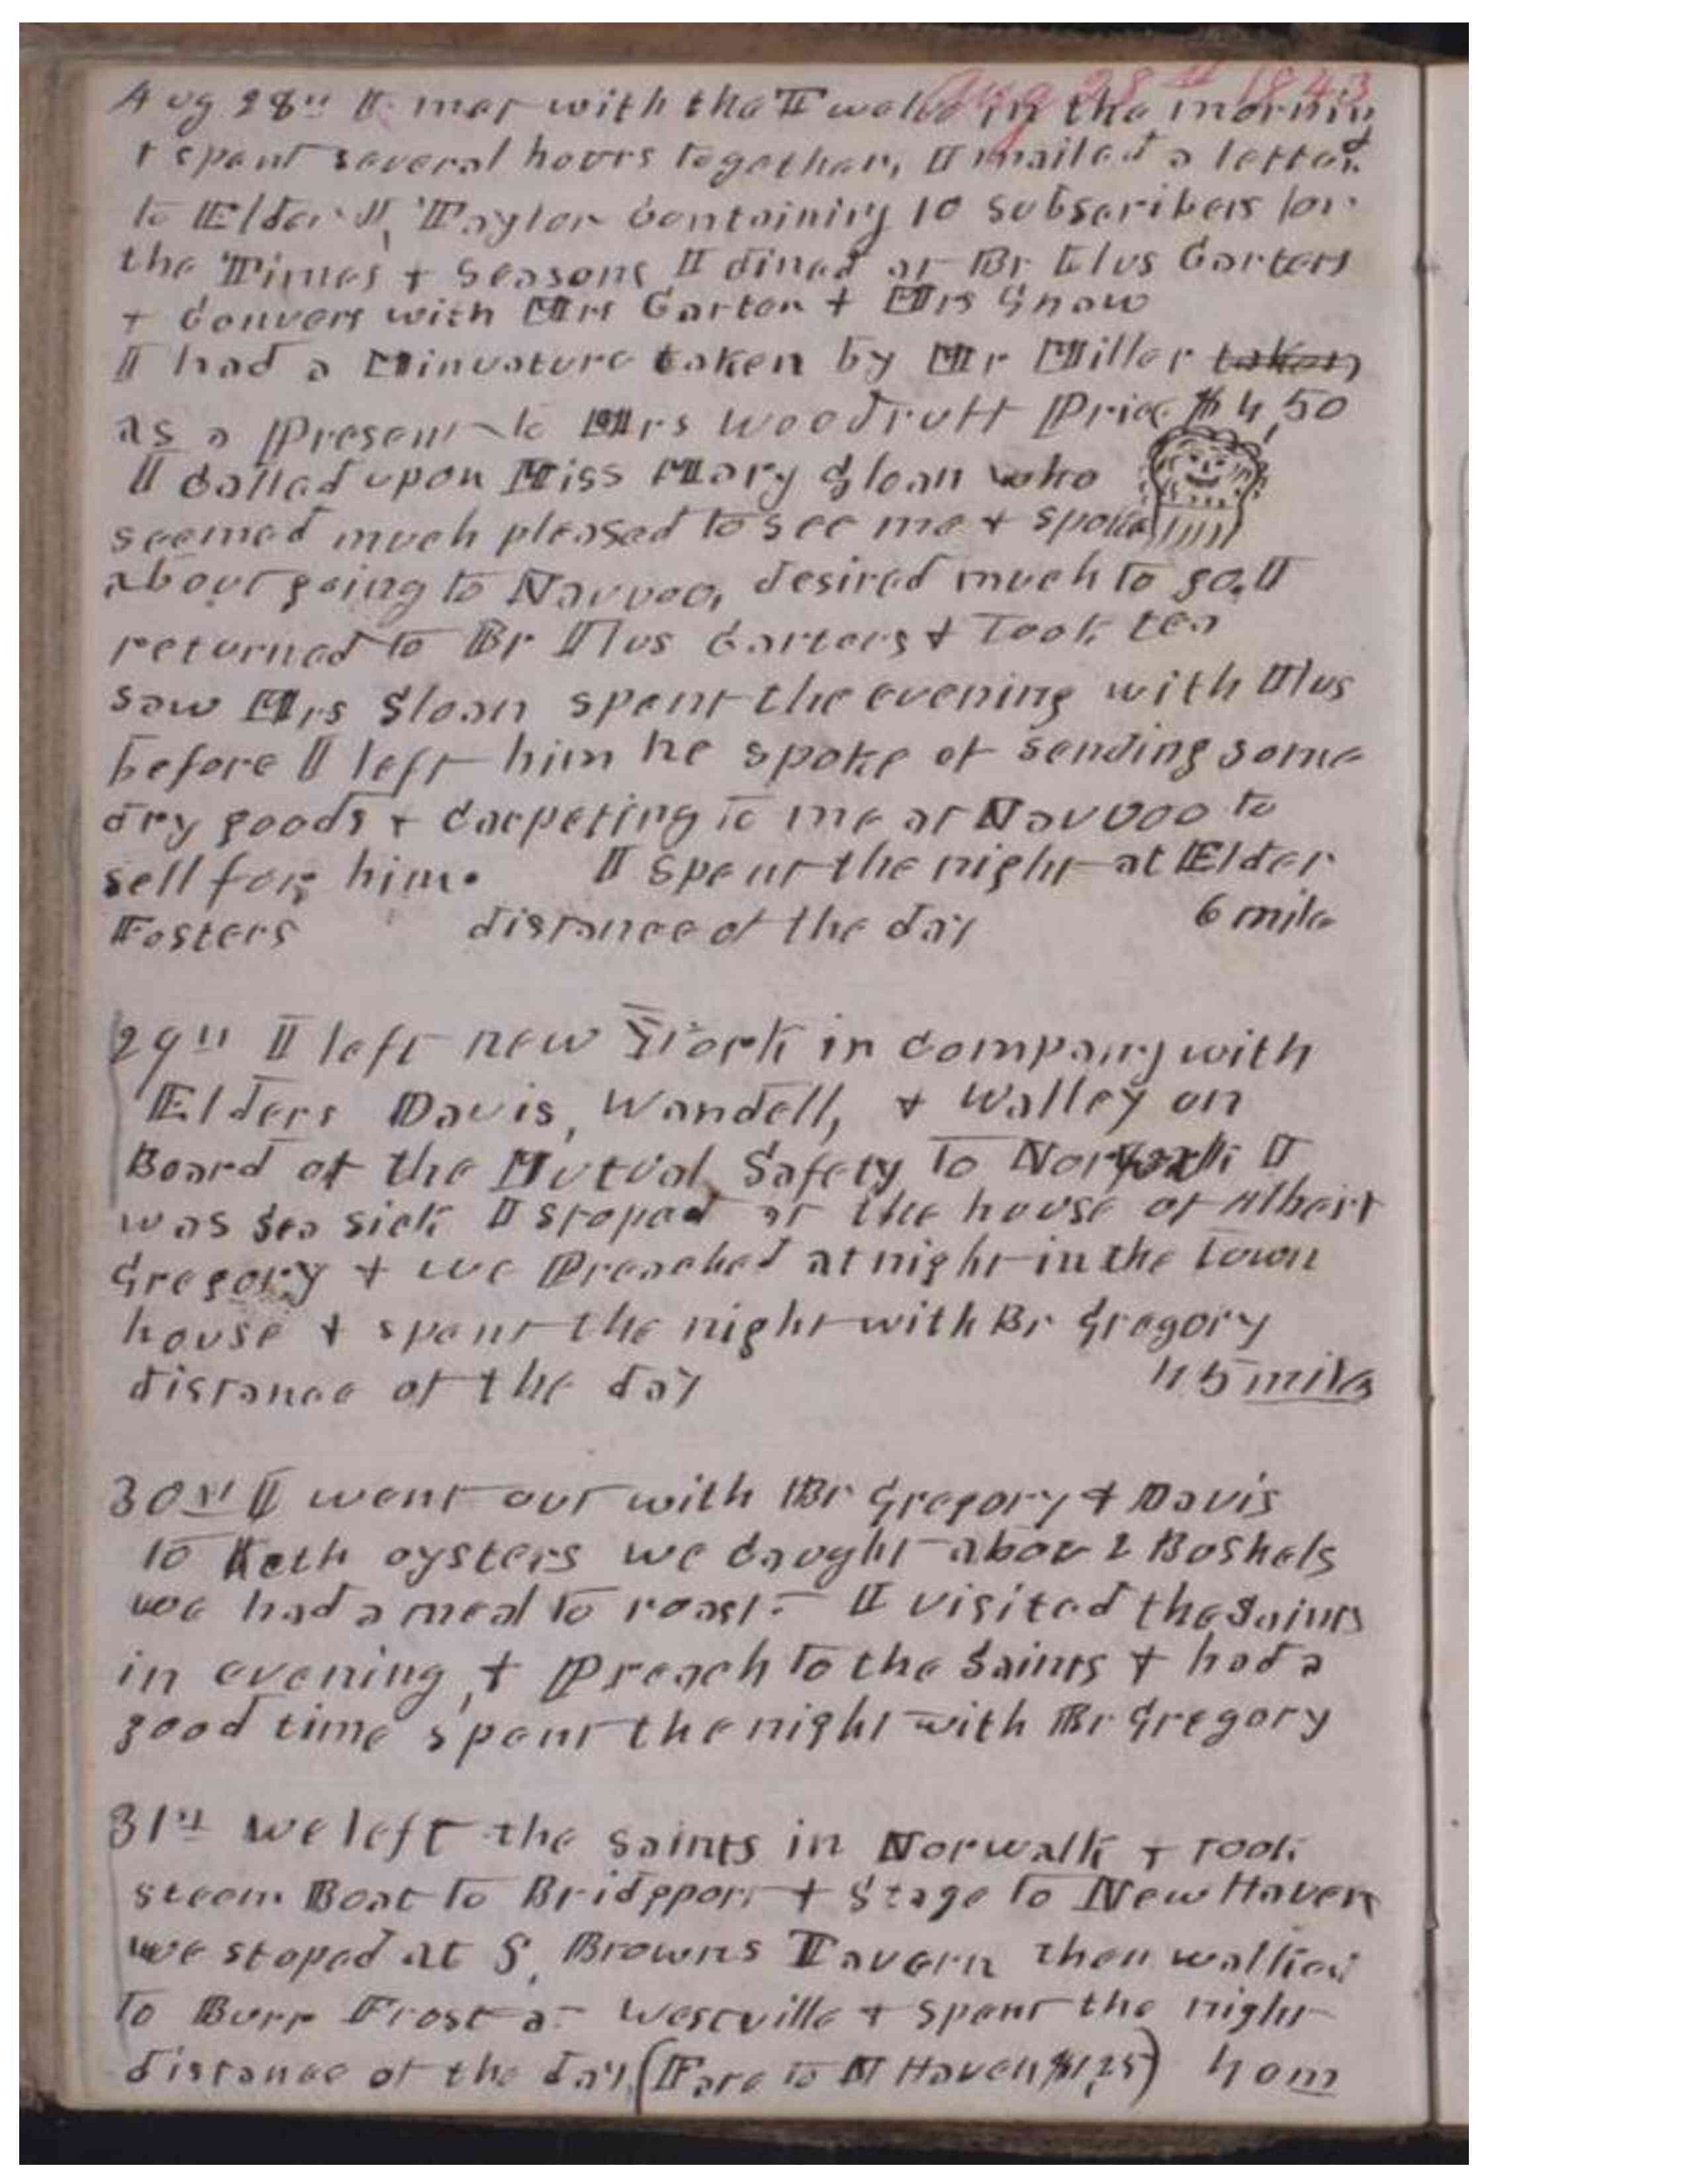 Aug 28th 1843
Aug 28th I met with the Twelve in the morning
& spent several hours together, I mailed a letter
to Elder J, Taylor Containing 10 subscribers for
the Times & Seasons I dined at Br Elus Carters
& Convers with Mrs Carter & Mrs Snow
I had a Minuature taken by Mr Miller taken
as a Present to Mrs Woodruff Price $4,50
I Called upon Miss Mary Sloan who
seemed much pleased to see me & spoke
about going to Nauvoo, desired much to go. I
returned to Br Ilus Carters & Took tea
saw Mrs Sloan spent the evening with Ilus
before I left him he spoke of sending some
dry goods & Carpeting to me at Nauvoo to
sell for him. I spent the night at Elder
Fosters distance of the day 6 mile
29th I left new York in Company with
Elders Davis, Wandell, & Walley on
Board of the Mutual Safety To Norwalk I
was sea sick I stoped at the house of Albert
Gregory & we Preached at night in the town
house & spent the night with Br Gregory
distance of the day 45 miles
30st I went out with Br Gregory & Davis
to Keth oysters we Caught about 2 Bushels
we had a meal to roast. I visited the Saints
in evening, & Preach to the Saints & had a
good time spent the night with Br Gregory
31st we left the saints in Norwalk & rook
steem Boat to Bridgport & Stage to New Haven
we stoped at S, Browns Tavern then walked
To Burr Frost at Westville & spent the night
distance of the day (Fare to N Haven $1,25) 40 m